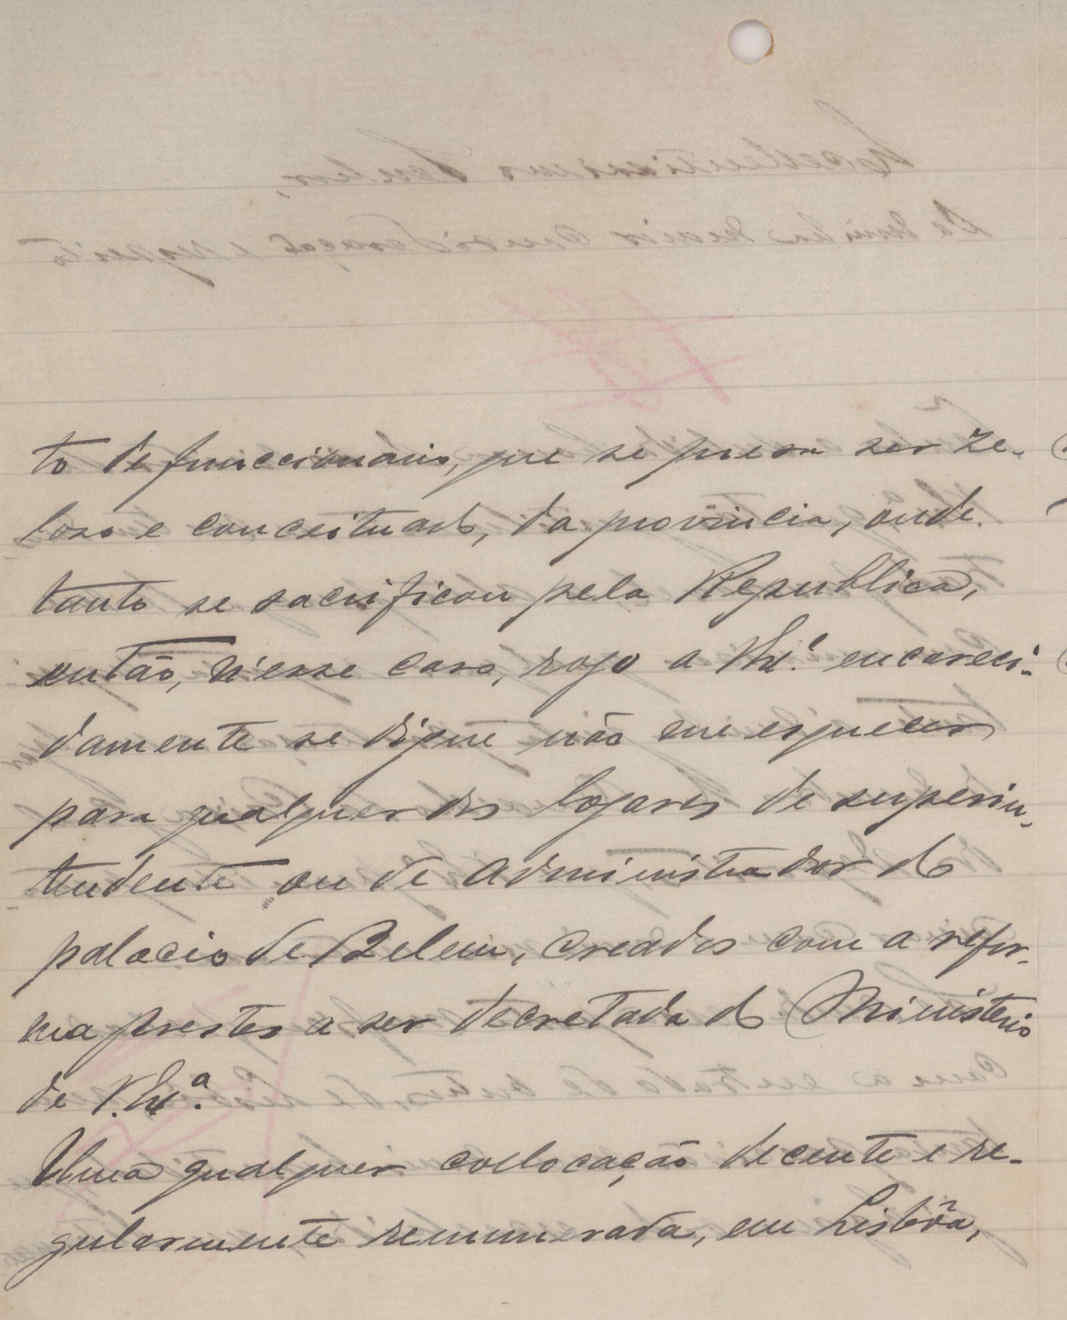 to de funccionario, que se presa ser ze-
loso e conceituado, da provincia, onde
tanto se sacrificou pela Republica,
então, n'esse caso, rogo a V. Ex.ª encareci-
damente se digne não me esquecer
para qualquer dos logares de superin-
tendente ou de administrador do
palacio de Belem, creados com a refor-
ma prestes a ser decretada do Ministerio
de V. Ex.ª
Uma qualquer collocação decente e re-
gularmente remunerada, em Lisbôa,